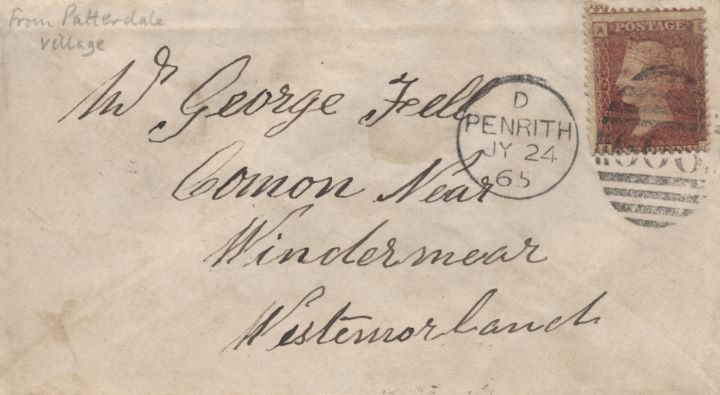 From Patterdale
Village
A E
POSTAGE
Mr George Fell
D
PENRITH
JY 24
65
Comon Near
Windermear
Westemorland